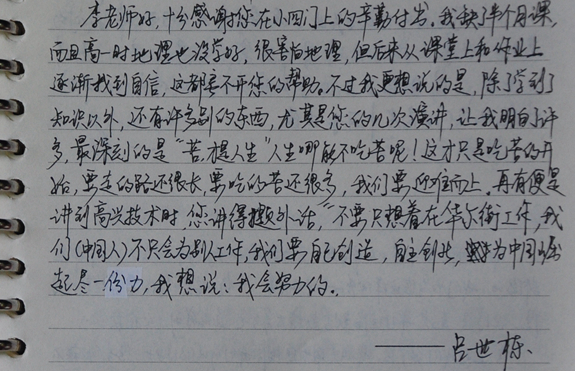 李老师好,十分感谢您在小四门上的辛勤付出。我缺了半个月课,
而且高一时地理也没学好,很害怕地理,但后来从课堂上和作业上
逐渐找到自信,这都离不开您的帮助。不过我更想说的是,除了学到了
知识以外,还有许多别的东西,尤其是您的几次演讲,让我明白了许
多,最深刻的是“苦才是人生”人生哪能不吃苦呢!这才只是吃苦的开
始,要走的路还很长,要吃的苦还很多,我们要迎难而上。再有便是
讲到高兴技术时,您讲得题外话,“不要只想着在华尔街工作,我
们(中国人)不只会为别人工作,我们要自己创造,自主创业,为中国崛
起尽一份力,我想说:我会努力的。
——吕世栋